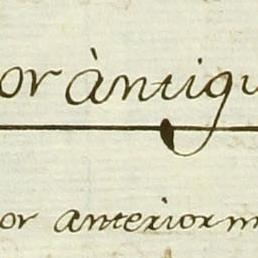 or àntigu
or anteriorm